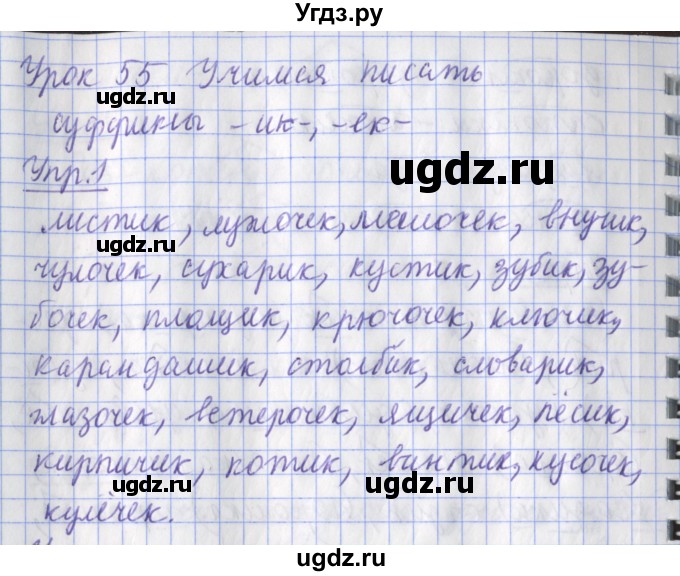 Угдз.ру
Урок 55 Учимся писать
ugdz.ru
суффиксы -ик-, -ек-
ugdz.ru
Упр.1
листик, лужочек, мешочек, внучик,
ugdz.ru
чулочек, сухарик, кустик, зубик, зу-
бочек, площик, крючочек, ключик,
ugdz.ru ugdz.ru
карандашик, столбик, словарик,
глазочек, ветерочек, ящичек, пёсик,
ugdz.ru
кирпичик, котик, винтик, кусочек,
ugdz.ru
кулёчек.
ugdz.ru